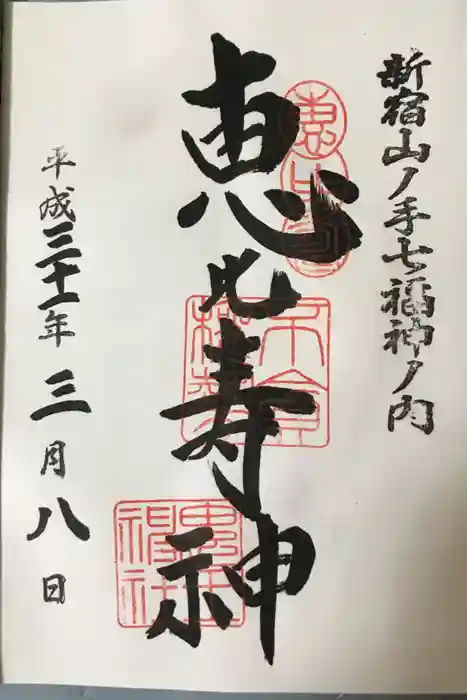 新宿山ノ手七福神ノ内
恵比寿神
平成三十一年三月八日
恵比寿